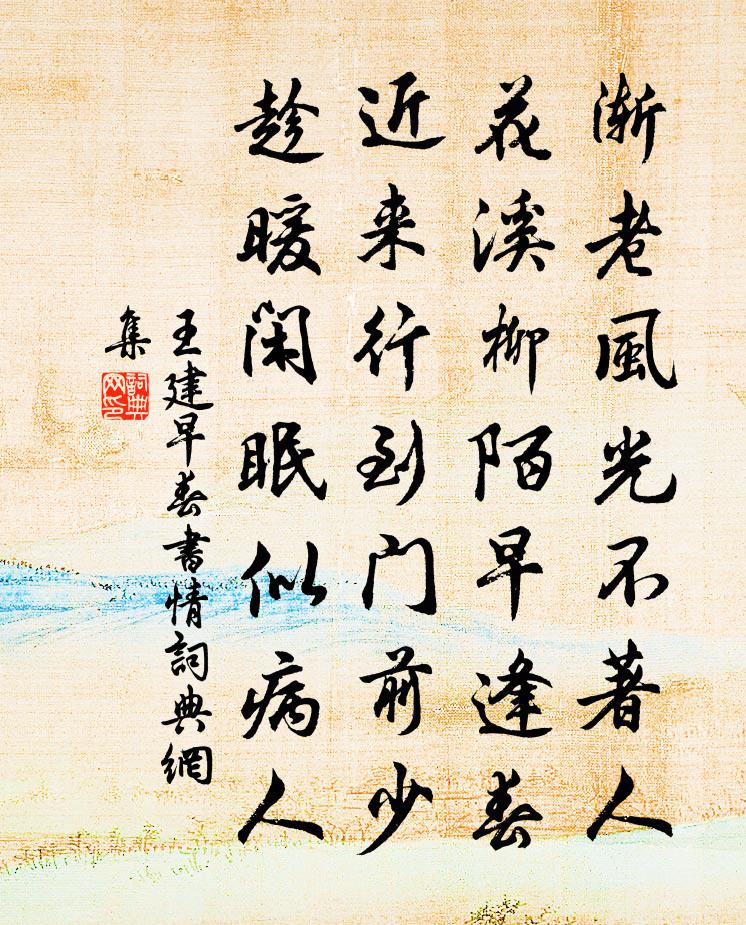 漸老風光不著人
花溪柳陌早逢春
近来行到门前少
趁暖閑眠似病人
王建早春書情詞典網
集
詞典
网印